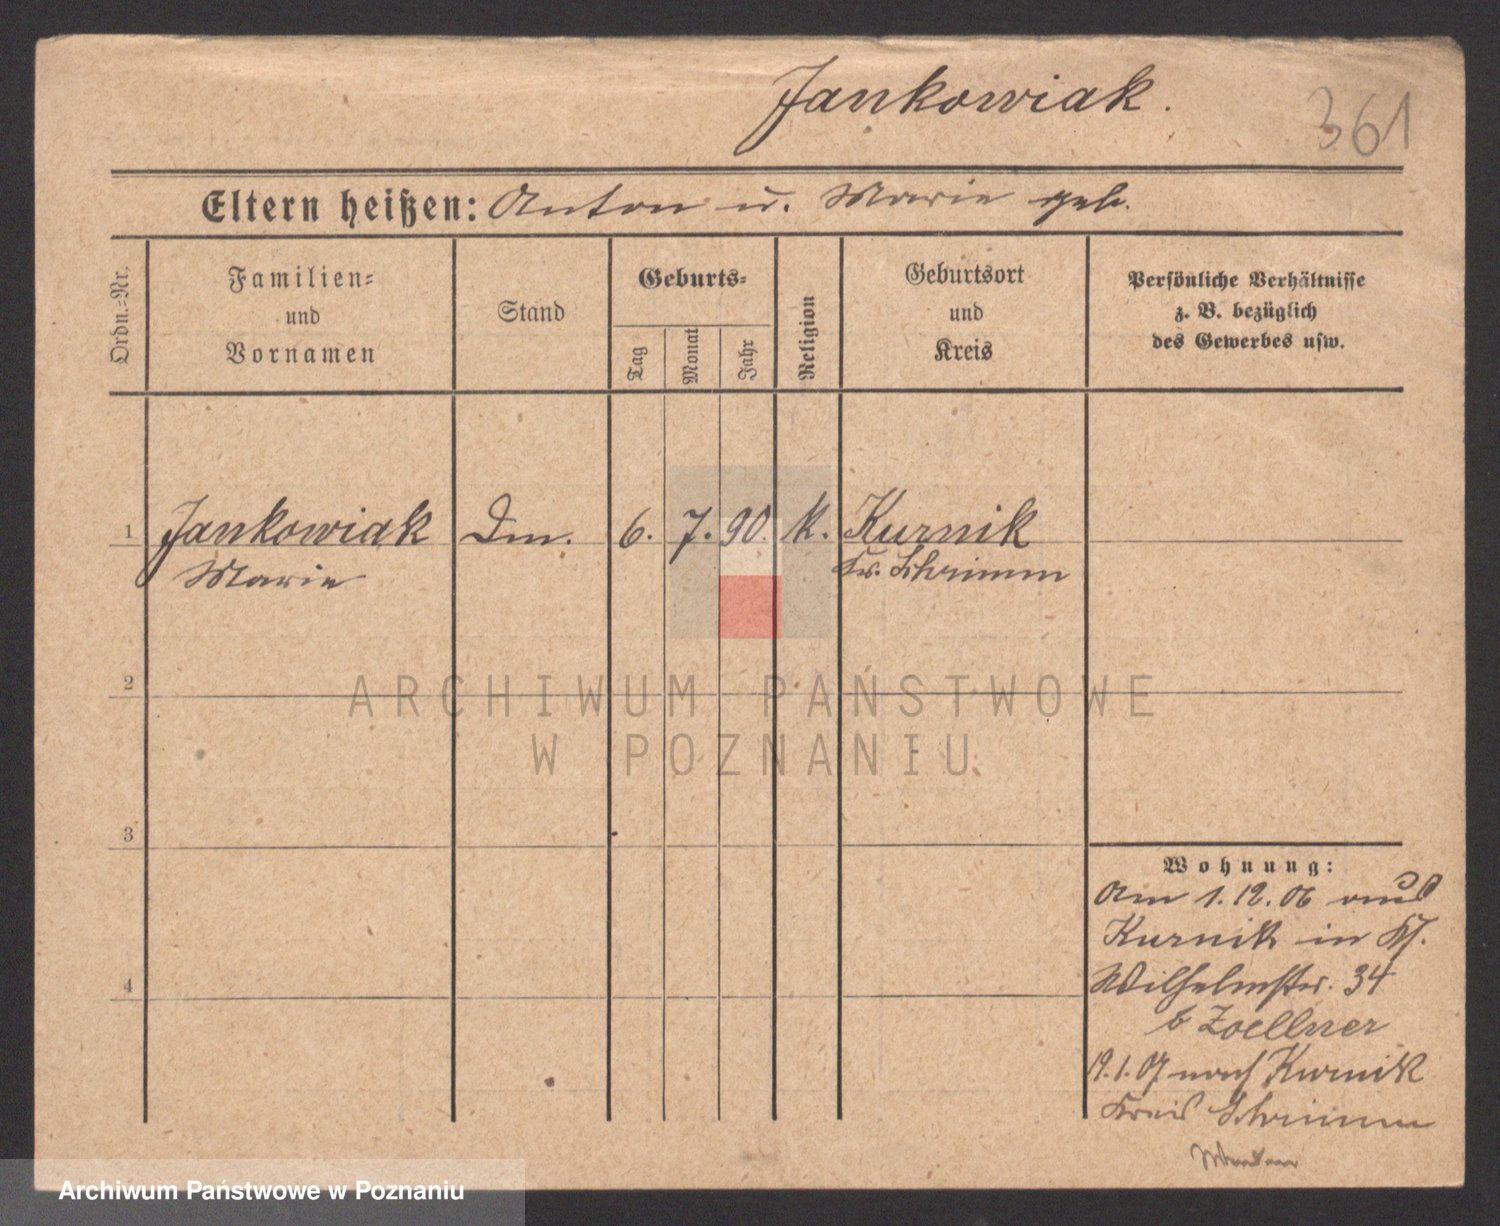 Jankowiak.
361
Eltern heißen: Anton u. Marie geb.
Ordn.-Nr.
Familien-
und
Vornamen
Stand
Geburts-
Tag
Monat
Jahr
Religion
Geburtsort
und
Kreis
Persönliche Verhältnisse
z. B. bezüglich
des Gewerbes usw.
1 Jankowiak Dm. 6. 7. 90. k. Kurnik
Marie Kr. Schrimm
2
3
4
Wohnung:
Am 1.12.06 aus
Kurnik in
Wilhelmstr. 34
b Zoellner
19.1.07 nach Kurnik
Kreis Schrimm
ARCHIWUM PAŃSTWOWE
W POZNANIU
Archiwum Państwowe w Poznaniu